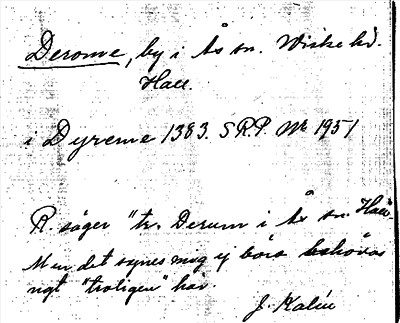 Derome, by i Ås sn. Viske hd.
Hall.
i Dyreme 1383. SRP. No 1951
R. säger "tr. Derum i Ås sn. Hall.
Men det synes mig ej böra behövas
ngt "troligen" här.
J. Kalén